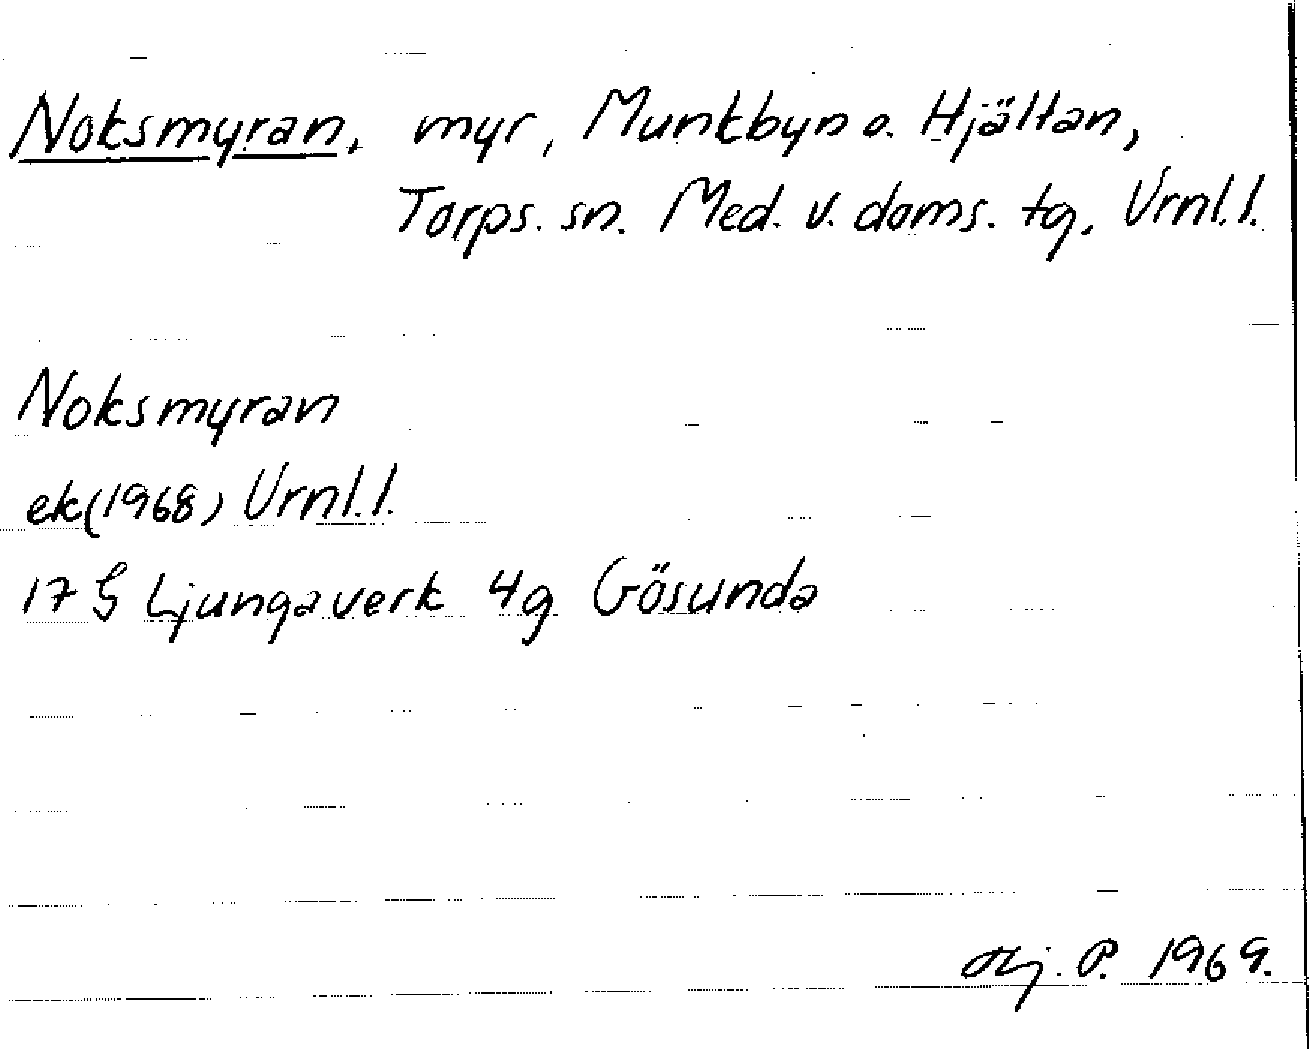 Noksmyran, myr, Munkbyn o. Hjältan,
Torps. sn. Med. v. doms. tg, Vrnl. l.
Noksmyran
ek (1968) Vrnl. l.
17 G Ljungaverk 4g Gösunda
P. 1969.